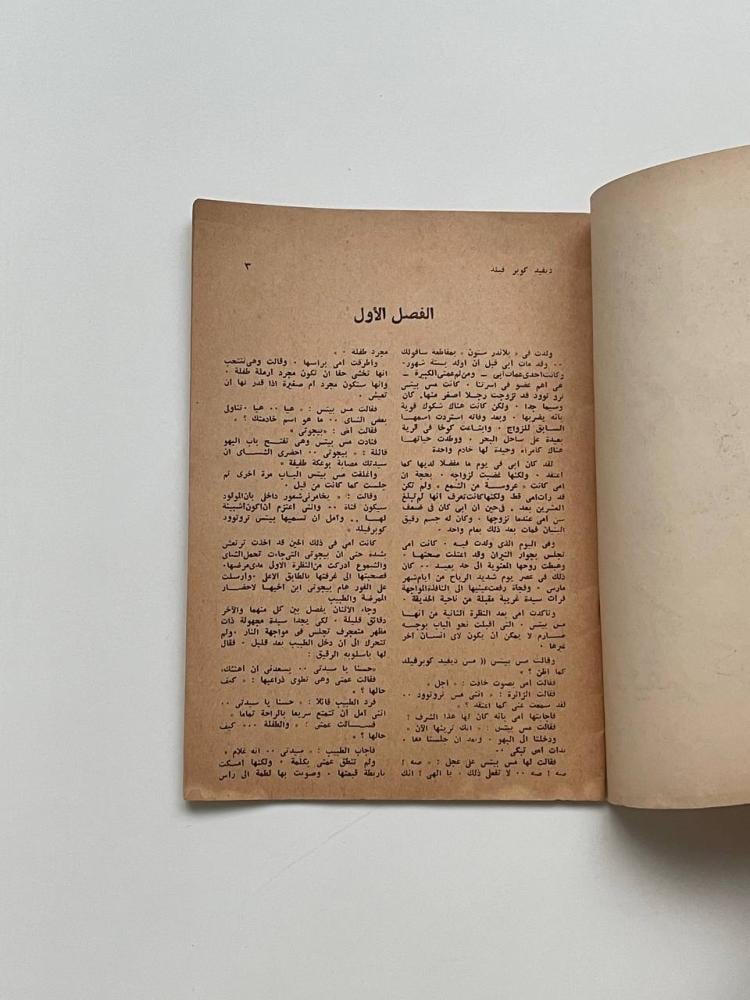 ديفيد كوبر فيلد
٣
الفصل الأول
ولدت فى « بلاندر ستون » بمقاطعة سافولك
٠٠ وقد مات ابى قبل أن أولد بستة شهور٠
وكانت احدى عمات أبى ــ ومن ثم عمتى الكبيرة ــ
هى أهم عضو فى أسرتنا ٠ كانت مس بيتسى
تروتوود قد تزوجت رجلا أصغر منها٠ كان
وسيما جدا ٠ ولكن كانت هناك شكوك قوية
بأنه يضربها ٠ وبعد وفاته استردت اسمها
السابق للزواج ٠ وابتاعت كوخا فى قرية
بعيدة على ساحل البحر ٠ ووطدت حياتها
هناك كامرأة وحيدة لها خادم واحدة
لقد كان أبى فى يوم ما مفضلا لديها كما
أعتقد ٠ ولكنها غضبت لزواجه ٠ بحجة أن
أمى كانت « عروسة من الشمع » ولم تكن
قد رأت أمى قط ولكنها كانت تعرف أنها لم تبلغ
العشرين بعد ٠ فى حين أن أبى كان فى ضعف
سن أمى عندما تزوجها ٠ وكان له جسم رقيق
الشأن فمات بعد ذلك بعام واحد ٠
وفى اليوم الذى ولدت فيه ٠ كانت أمى
تجلس بجوار النيران وقد اعتلت صحتها ٠
وهبطت روحها المعنوية الى حد بعيد ٠٠ كان
ذلك فى عصر يوم شديد الرياح من أيام شهر
مارس ٠ وفجأة رفعت عينيها الى النافذة المواجهة
فرأت سيدة غريبة مقبلة من ناحية الحديقة ٠
وتأكدت أمى بعد النظرة الثانية من أنها
مس بيتسى ٠٠ التى أقبلت نحو الباب بوجه
صارم لا يمكن أن يكون لأى انسان آخر
غيرها ٠
وقالت مس بيتسى : « مس ديفيد كوبرفيلد
كما أظن ؟ »
فقالت أمى بصوت خافت : « أجل »
فقالت الزائرة : « اننى مس تروتوود ٠٠
لقد سمعت عنى كما أعتقد ؟ »
فأجابتها أمى بأنه كان لها هذا الشرف !
فقالت مس بيتسى : « انك ترينها الآن »
ودخلتا الى البهو ٠ وبعد أن جلستا معا ٠
بدأت أمى تبكى ٠٠
فقالت لها مس بيتسى على عجل : « صه !
صه ! صه ٠٠ لا تفعلى ذلك ٠ يا الهى ! انك
مجرد طفلة ٠ »
وأطرقت أمى برأسها ٠ وقالت وهى تنتحب
انها تخشى حقا أن تكون مجرد أرملة طفلة ٠
وأنها ستكون مجرد أم صغيرة اذا قدر لها أن
تعيش ٠
فقالت مس بيتسى : « هيا ٠٠ هيا ٠ تناولى
بعض الشاى ٠٠ ما هو اسم خادمتك ؟ »
فقالت أمى : « بيجوتى »
فنادت مس بيتسى وهى تفتح باب البهو
قائلة : « بيجوتى ٠٠ أحضرى الشاى ان
سيدتك مصابة بوعكة طفيفة »
وأغلقت مس بيتسى الباب مرة أخرى ثم
جلست كما كانت من قبل ٠
وقالت : « يخامرنى شعور داخلى بأن المولود
سيكون فتاة ٠٠ واننى أعتزم أن أكون اشبينة
لها ٠٠ وآمل أن تسميها بيتسى تروتوود
كوبرفيلد »
كانت أمى فى ذلك الحين قد أخذت ترتعش
بشدة حتى أن بيجوتى التى جاءت تحمل الشاى
والشموع أدركت من النظرة الأولى مدى مرضها٠
فصحبتها الى غرفتها بالطابق الأعلى ٠ وأرسلت
على الفور هام بيجوتى ابن أخيها لاحضار
الممرضة والطبيب
وجاء الاثنان يفصل بين كل منهما والآخر
دقائق قليلة ٠ لكى يجدا سيدة مجهولة ذات
مظهر متعجرف تجلس فى مواجهة النار ٠ ولم
تتحرك الى أن دخل الطبيب بعد قليل ٠ فقال
لها بأسلوبه الرقيق :
« حسنا يا سيدتى ٠٠ يسعدنى أن أهنئك»
فقالت عمتى وهى تطوى ذراعيها : « كيف
حالها ؟ »
فرد الطبيب قائلا : « حسنا يا سيدتى ٠٠
اننى آمل أن تتمتع سريعا بالراحة تماما »
فسألت عمتى : « والطفلة ٠٠٠ كيف
حالها ؟ »
فأجاب الطبيب : « سيدتى ٠٠ انه غلام »
ولم تنطق عمتى بكلمة ٠ ولكنها أمسكت
بأربطة قبعتها ٠ وصوبت بها لطمة الى رأس